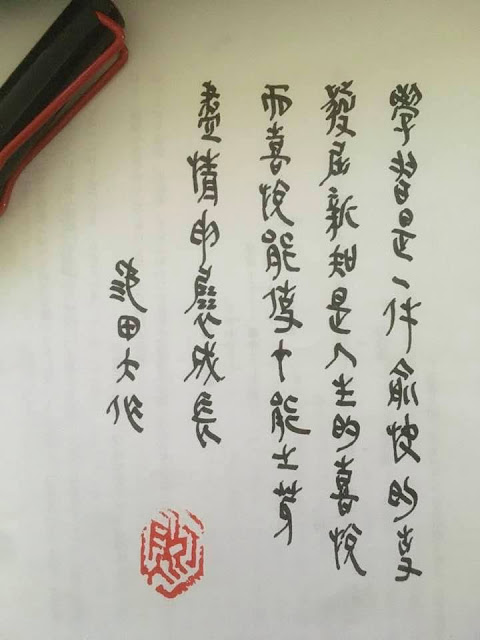 學習是一件愉快的事
發掘新知是人生的喜悅
而喜悅能使才能之芽
盡情伸展成長
池田大作